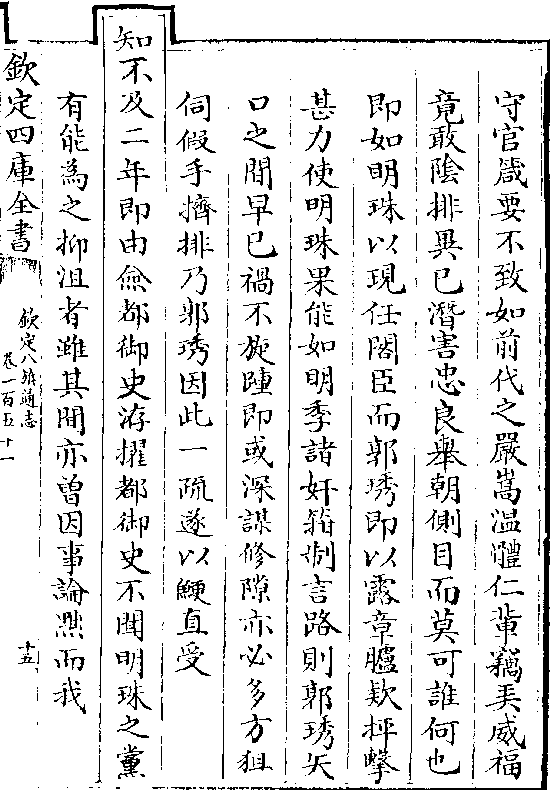 守官箴要不致如前代之嚴嵩溫體仁輩竊弄威福
竟敢陰排異已潛害忠良舉朝側目而莫可誰何也
即如明珠以現任閣臣而郭琇即以露章臚欵抨擊
甚力使明珠果能如明季諸奸箝制言路則郭琇矢
口之間早已禍不旋踵即或深謀修隙亦必多方狙
伺假手擠排乃郭琇因此一疏遂以鯁直受
知不及二年即由僉都御史洊擢都御史不聞明珠之黨
有能為之抑沮者雖其間亦曾因事論黜而我
欽定四庫全書
欽定八旗通志
卷一百五十一
十五